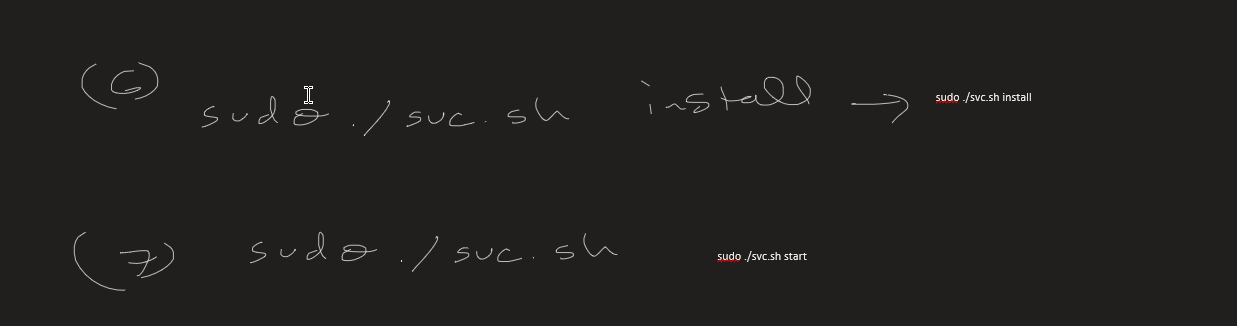 (6) sudo ./svc.sh install → sudo ./svc.sh install
(7) sudo ./svc.sh sudo ./svc.sh start